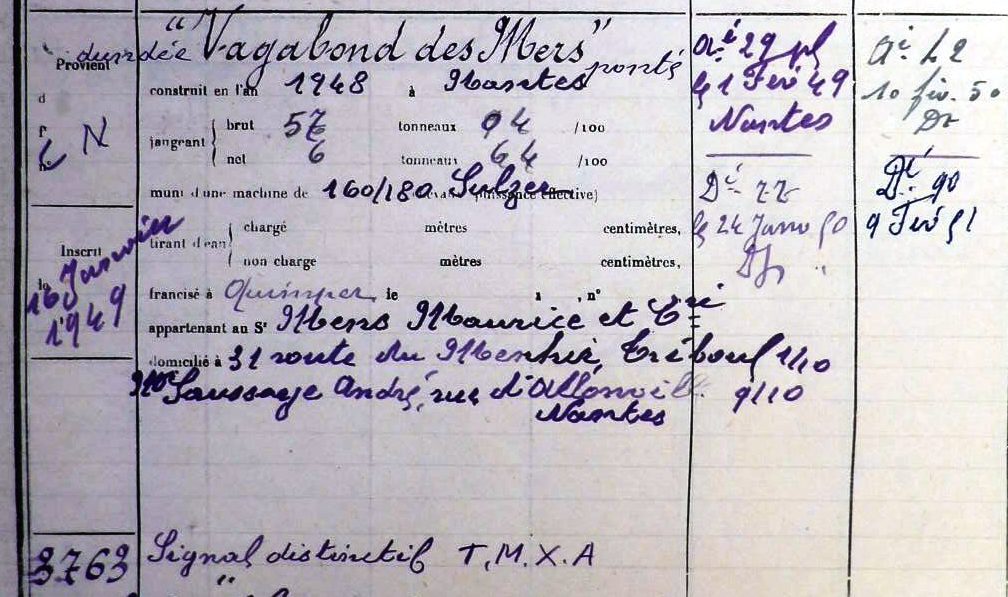 dundée "Vagabond des Mers" ponté
Provient
d
P
N
n°
construit en l'an 1948 à Nantes
jaugeant brut 57 tonneaux 94 /100
net 6 tonneaux 64 /100
muni d'une machine de 160/180 Sulzer (puissance effective)
tirant d'eau chargé mètres centimètres,
non chargé mètres centimètres,
francisé à Quimper le a , n°
appartenant au Sr Mens Maurice et Cie
domicilié à 31 route du Menhir, Tréboul 1/10
Saussaye André, rue d'Allonville 9/10
Nantes
Inscrit
le 16 Janvier
1949
3763
Signal distinctif T.M.X.A
"
Ai 29
le 1 Fév 49
Nantes
Dé 22
le 24 Janv 50
Dz
Ai 42
10 fév. 50
Dz
Dé 90
9 Fév 51